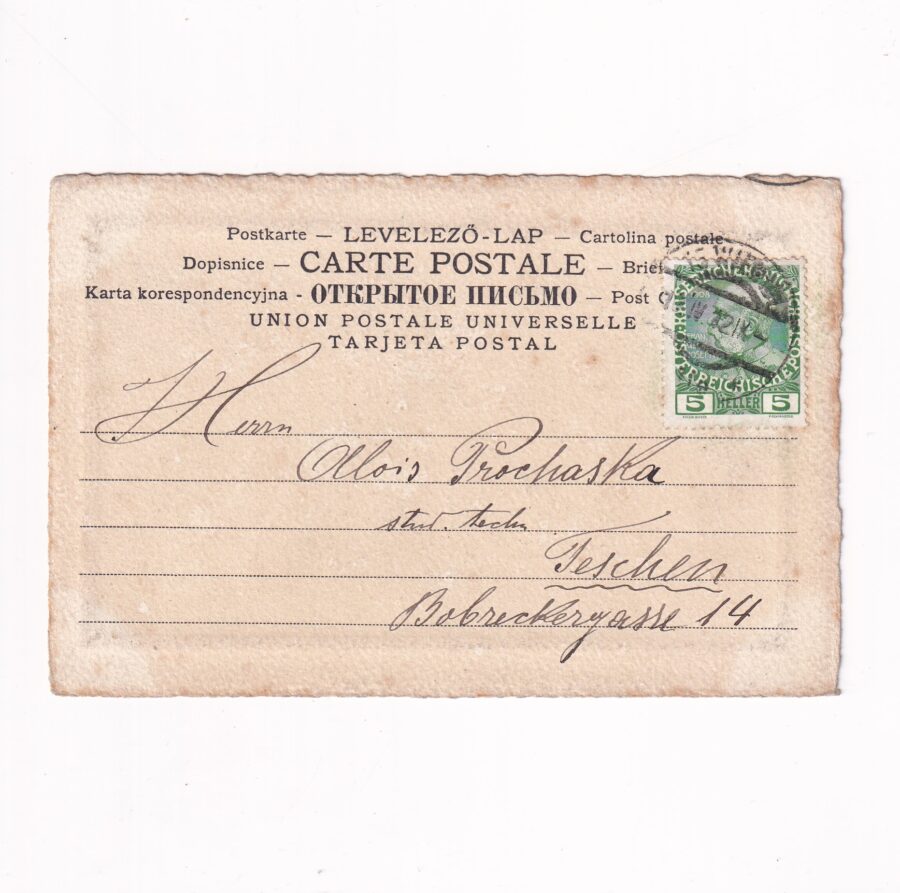 Postkarte — LEVELEZŐ-LAP — Cartolina postale
Dopisnice — CARTE POSTALE — Brief
Karta korespondencyjna - ОТКРЫТОЕ ПИСЬМО — Post
UNION POSTALE UNIVERSELLE
TARJETA POSTAL
5 HELLER 5
Herrn
Alois Prochaska
stud. techn
Teschen
Bobreckergasse 14